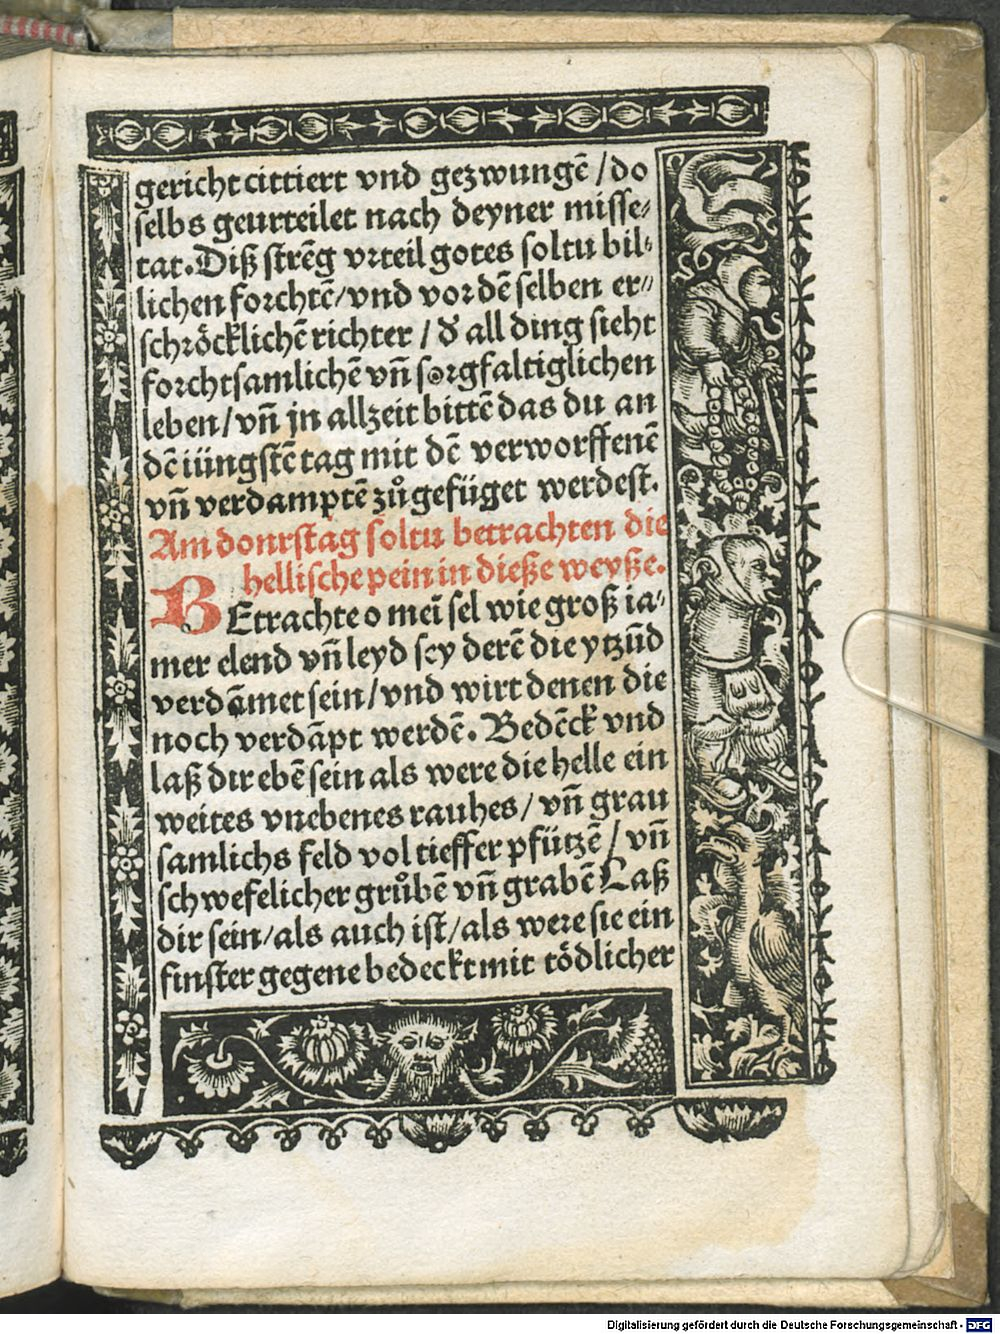 gericht cittiert vnd gezwungē /do
selbs geurteilet nach deyner misse⸗
tat. Diß strēg vꝛteil gotes soltu bil⸗
lichen forchtē/vnd voꝛ dē selben er⸗
schꝛöcklichē richter / d̕ all ding sieht
forchtsamlichē vn̄ sorgfaltiglichen
leben/vn̄ jn allzeit bittē das du an
dē iüngstē tag mit dē verworffenē
vn̄ verdamptē zů gefüget werdest.
Am donrstag soltu betrachten die
hellische pein in dieße weyße.
BEtrachte o mei̅ sel wie groß ia⸗
mer elend vn̄ leyd sey derē die ytzūd
verdāmet sein/vnd wirt denen die
noch verdāpt werdē. Bedēck vnd
laß dir ebē sein als were die helle ein
weites vnebenes rauhes/ vn̄ grau
samlichs feld vol tieffer pfützē/ vn̄
schwefelicher grůbē vn̄ grabē Laß
dir sein/als auch ist/als were sie ein
finster gegene bedeckt mit tödlicher
Digitalisierung gefördert durch die Deutsche Forschungsgemeinschaft - DFG